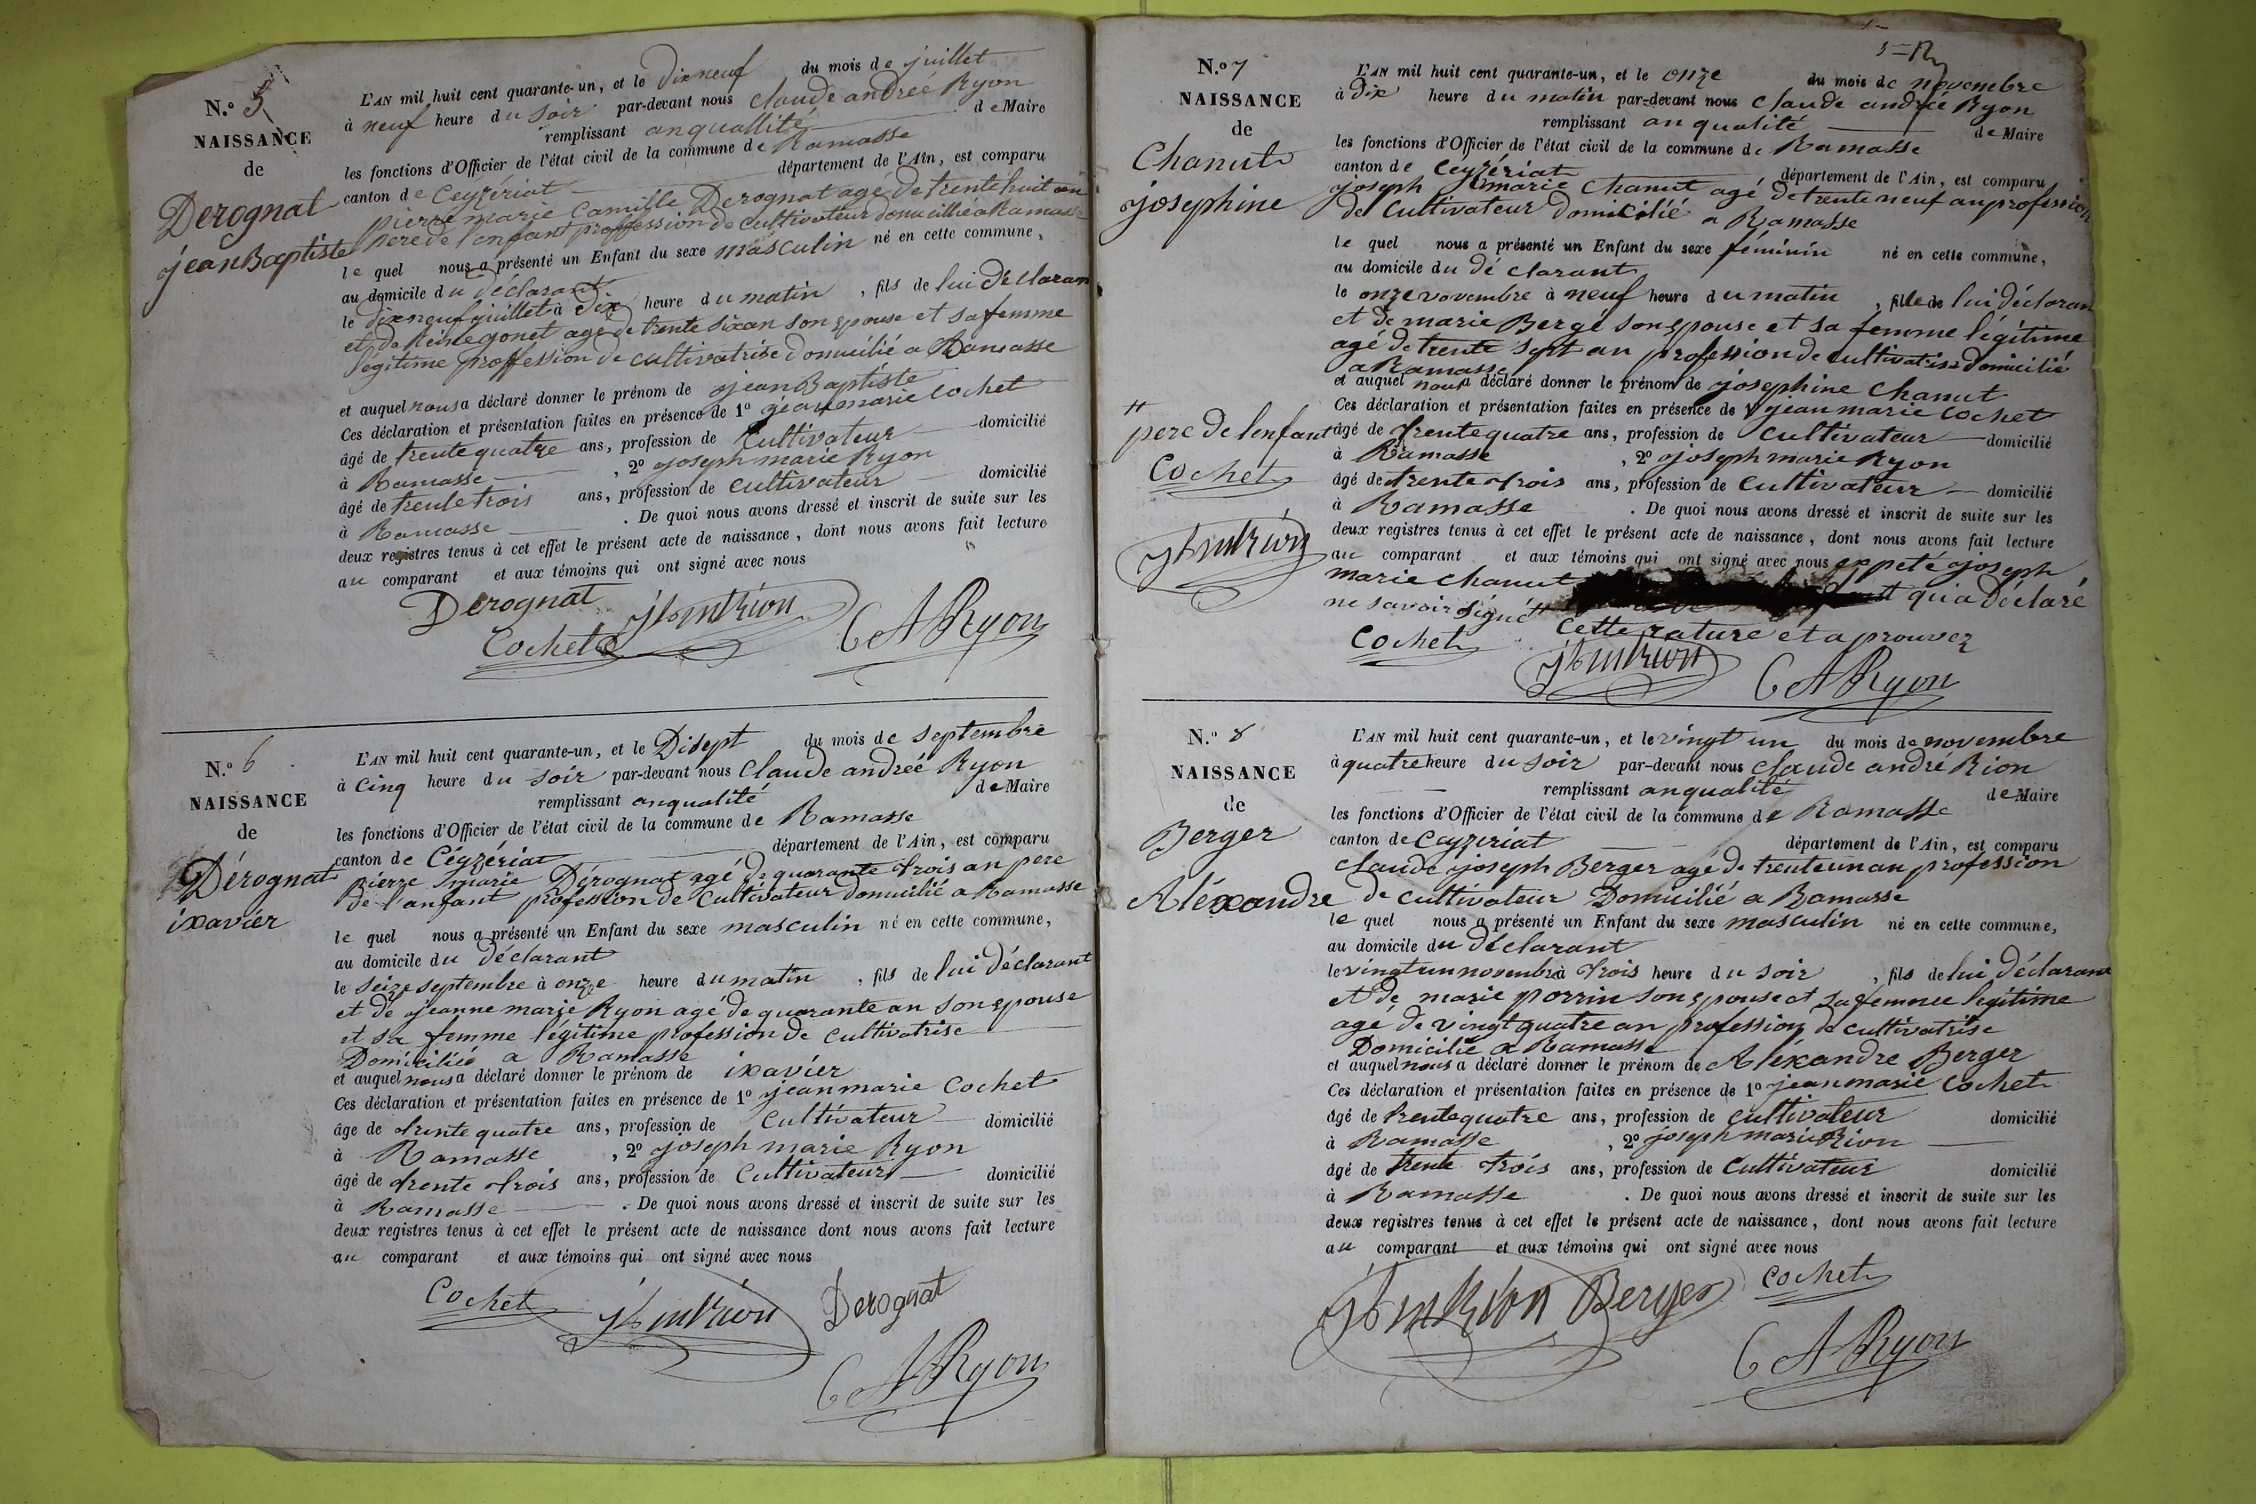 N.º 5
NAISSANCE
de
Derognat
jean Baptiste
L'AN mil huit cent quarante-un, et le Dixneuf du mois de juillet
à neuf heure du soir par-devant nous claude andreé Ryon
remplissant anquallité de Maire
les fonctions d'Officier de l'état civil de la commune de Ramasse
canton de Ceyzériat département de l'Ain, est comparu
pierre marie Camille Derognat agé de trente huit an
pere de l'enfant proffession de cultivateur domicillié a Ramasse
le quel nous a présenté un Enfant du sexe masculin né en cette commune,
au domicile du déclarant
le dixneuf juillet à dix heure du matin, fils de lui déclarant
et de Reine gonet agé de trente sixan son epouse et sa femme
légitime proffession de cultivatrise domicilié a Ramasse
et auquel nous a déclaré donner le prénom de jean Baptiste
Ces déclaration et présentation faites en présence de 1º jean marie Cochet
âgé de trente quatre ans, profession de Cultivateur domicilié
à Ramasse, 2º joseph marie Ryon
âgé de trente trois ans, profession de cultivateur domicilié
à Ramasse. De quoi nous avons dressé et inscrit de suite sur les
deux registres tenus à cet effet le présent acte de naissance, dont nous avons fait lecture
au comparant et aux témoins qui ont signé avec nous
Derognat
Cochet
C A Ryon
N.º 6
NAISSANCE
de
Dérognat
ixaviér
L'AN mil huit cent quarante-un, et le Disept du mois de septembre
à Cinq heure du soir par-devant nous Claude andreé Ryon
remplissant anqualité de Maire
les fonctions d'Officier de l'état civil de la commune de Ramasse
canton de Céyzériat département de l'Ain, est comparu
Pierre marie Dérognat agé de quarante trois an pere
de l'anfant profession de cultivateur domicilié a Ramasse
le quel nous a présenté un Enfant du sexe masculin né en cette commune,
au domicile du déclarant
le seize septembre à onze heure du matin, fils de lui déclarant
et de jeanne marie Ryon agé de quarante an son epouse
et sa femme légitime profession de cultivatrise
Domiciliée a Ramasse
et auquel nous a déclaré donner le prénom de ixaviér
Ces déclaration et présentation faites en présence de 1º jean marie Cochet
âge de trente quatre ans, profession de Cultivateur domicilié
à Ramasse, 2º joseph marie Ryon
âgé de trente trois ans, profession de Cultivateur domicilié
à Ramasse. De quoi nous avons dressé et inscrit de suite sur les
deux registres tenus à cet effet le présent acte de naissance dont nous avons fait lecture
au comparant et aux témoins qui ont signé avec nous
Cochet
Derognat
C A Ryon
N.º 7
NAISSANCE
de
Chanut
josephine
L'AN mil huit cent quarante-un, et le onze du mois de novembre
à dix heure du matin par-devant nous claude andreé Ryon
remplissant anqualité de Maire
les fonctions d'Officier de l'état civil de la commune de Ramasse
canton de Ceyzériat département de l'Ain, est comparu
joseph marie Chanut agé de trente neuf an profession
de Cultivateur domicilié a Ramasse
le quel nous a présenté un Enfant du sexe féminin né en cette commune,
au domicile du dé clarant
le onze vovembre à neuf heure du matin, fille de lui déclaran
et de marie Bergé son epouse et sa femme légitime
agé de trente sept an profession de cultivatrise domicilié
a Ramasse
et auquel nous a déclaré donner le prénom de josephine Chanut
Ces déclaration et présentation faites en présence de 1º jean marie Cochet
âgé de trente quatre ans, profession de Cultivateur domicilié
à Ramasse, 2º joseph marie Ryon
âgé de trente trois ans, profession de Cultivateur domicilié
à Ramasse. De quoi nous avons dressé et inscrit de suite sur les
deux registres tenus à cet effet le présent acte de naissance, dont nous avons fait lecture
au comparant et aux témoins qui ont signé avec nous expeté joseph
marie Chanut qui a déclaré
ne savoir signé
cette rature et a prouvez
pere de l'enfant
Cochet
Cochet
C A Ryon
N.º 8
NAISSANCE
de
Berger
Aléxandre
L'AN mil huit cent quarante-un, et le vingt un du mois de novembre
à quatre heure du soir par-devant nous claude andré Rion
remplissant anqualité de Maire
les fonctions d'Officier de l'état civil de la commune de Ramasse
canton de Ceyzeriat département de l'Ain, est comparu
Claude joseph Berger agé de trente un an profession
de cultivateur Domicilié a Ramasse
le quel nous a présenté un Enfant du sexe masculin né en cette commune,
au domicile du déclarant
le vingt un novembre à trois heure du soir, fils de lui déclarant
et de marie porrin son epouse et sa femme légitime
agé de vingt quatre an profession de cultivatrise
Domicilié a Ramasse
et auquel nous a déclaré donner le prénom de Aléxandre Berger
Ces déclaration et présentation faites en présence de 1º jean marie Cochet
âgé de trente quatre ans, profession de cultivateur domicilié
à Ramasse, 2º joseph marie Rion
âgé de trente trois ans, profession de Cultivateur domicilié
à Ramasse. De quoi nous avons dressé et inscrit de suite sur les
deux registres tenus à cet effet le présent acte de naissance, dont nous avons fait lecture
au comparant et aux témoins qui ont signé avec nous
Berger
Cochet
C A Ryon